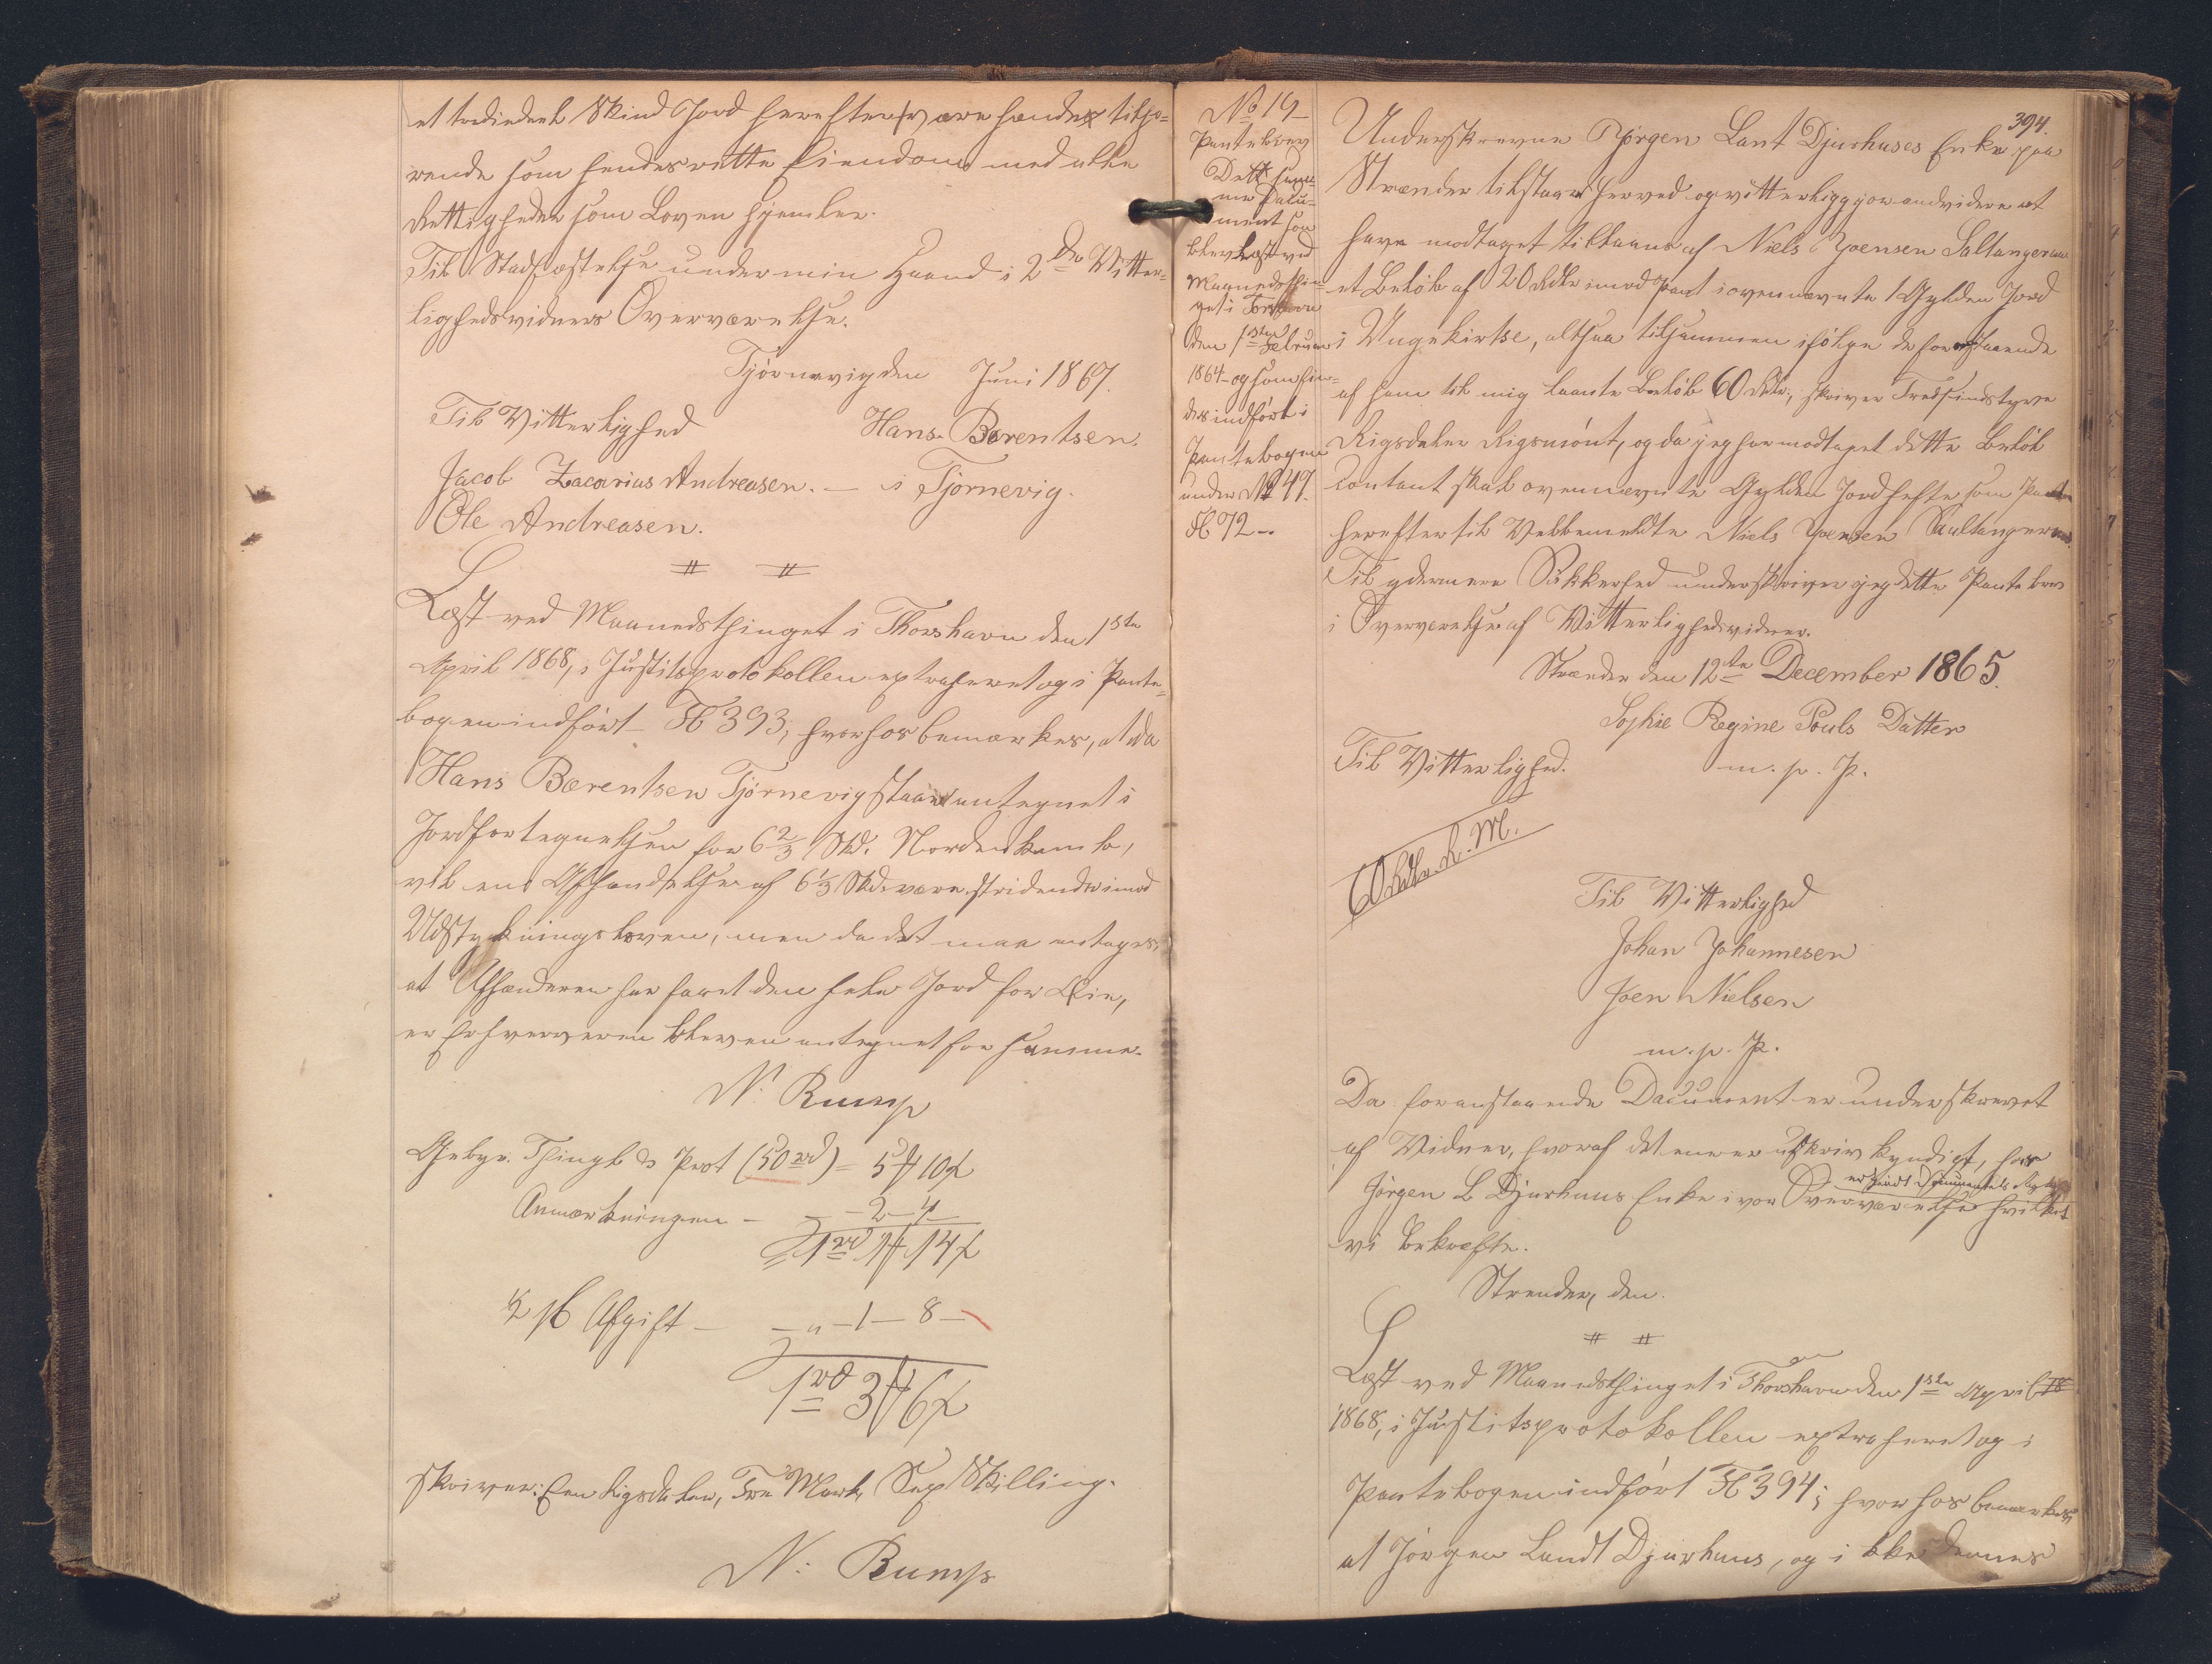 et trediedeel Skind Jord herefter være hende tilhø-
rende som hendes rette Eiendom med alle
Rettigheder som Loven hjemler.
Til Stadfæstelse under min Haand i 2de Vitter-
lighedsvidners Overværelse.
Tjørnevig den Juni 1867.
Til Vitterlighed Hans Berentsen.
Jacob Zacarias Andreasen. — i Tjørnevig.
Ole Andreasen.
Læst ved Maanedsthinget i Thorshavn den 1ste
April 1868, i Justitsprotokollen extraheret og i Pante-
bogen indført Fol 393; hvorhos bemærkes, at da
Hans Berentsen Tjørnevig staaer antegnet i
Jordfortegnelsen for 6 2/3 Skd.
vil en Afhændelse af 6 1/3 Skd. være stridende imod
Udstykningsloven, men da det maa antages,
at Afhænderen har havt den hele Jord for Eie,
er Erhververen bleven antegnet for samme.
N: Rump
Gebyr. Thingl & Prot (50 rd) = 5 ℔ 10 ß
Anmærkningen — — 2 — 4
1 rd 2 ℔ 14 ß
Afgift — — " — 1 — 8 —
1 rd 3 ℔ 6 ß
skriver: Een Rigsdaler, Tre Mark, Sex Skilling.
N: Rump
No 19
Pantebrev
Dette sam-
me Docu-
ment som
blev læst ved
Maanedsthin-
get i Torshavn
den 1ste Februar
1864 og som fin-
des indført i
Pantebogen
under No 49.
Fol 72 —
394.
Underskrevne Jørgen Lant Djurhuses Enke paa
Strænder tilstaar herved og vitterliggjør andvidere at
have modtaget tillaans af Niels Joensen Saltangeraa
et Beløb af 20 Rdlr imod Pant i ovennævnte 1 Gylden Jord
i Ungekirtse, altsaa tilsammen ifølge de foranstaaende
af ham til mig laante Beløb 60 Rdlr, skriver Tredsindstyve
Rigsdaler Rigsmønt, og da jeg har modtaget dette Beløb
Contant skal ovennævnte Gylden Jord hefte som Pant
herefter til Velbemeldte Niels Joensen Saultangeraa.
Til ydermere Sikkerhed underskriver jeg dette Pantebrev
i Overværelse af Vitterlighedsvidner.
Strænder den 12te December 1865.
Sophie Regine Pouls Datter
Til Vitterlighed. m. p. P.
60 Rdlr R. M.
Til Vitterlighed
Johan Johannesen
Joen Nielsen
m. p. P.
Da foranstaaende Document er underskrevet
af Vidner, hvoraf det ene er uskrivkyndigt, har
Jørgen L Djurhuus Enke i vor Overværelse hvilket
vi bekræfte.
Strender, den.
Læst ved Maanedsthinget i Thorshavn den 1ste April 18
1868, i Justitsprotokollen extraheret og i
Pantebogen indført Fol 394; hvorhos bemærkes
at Jørgen Landt Djurhuus, og ikke dennes